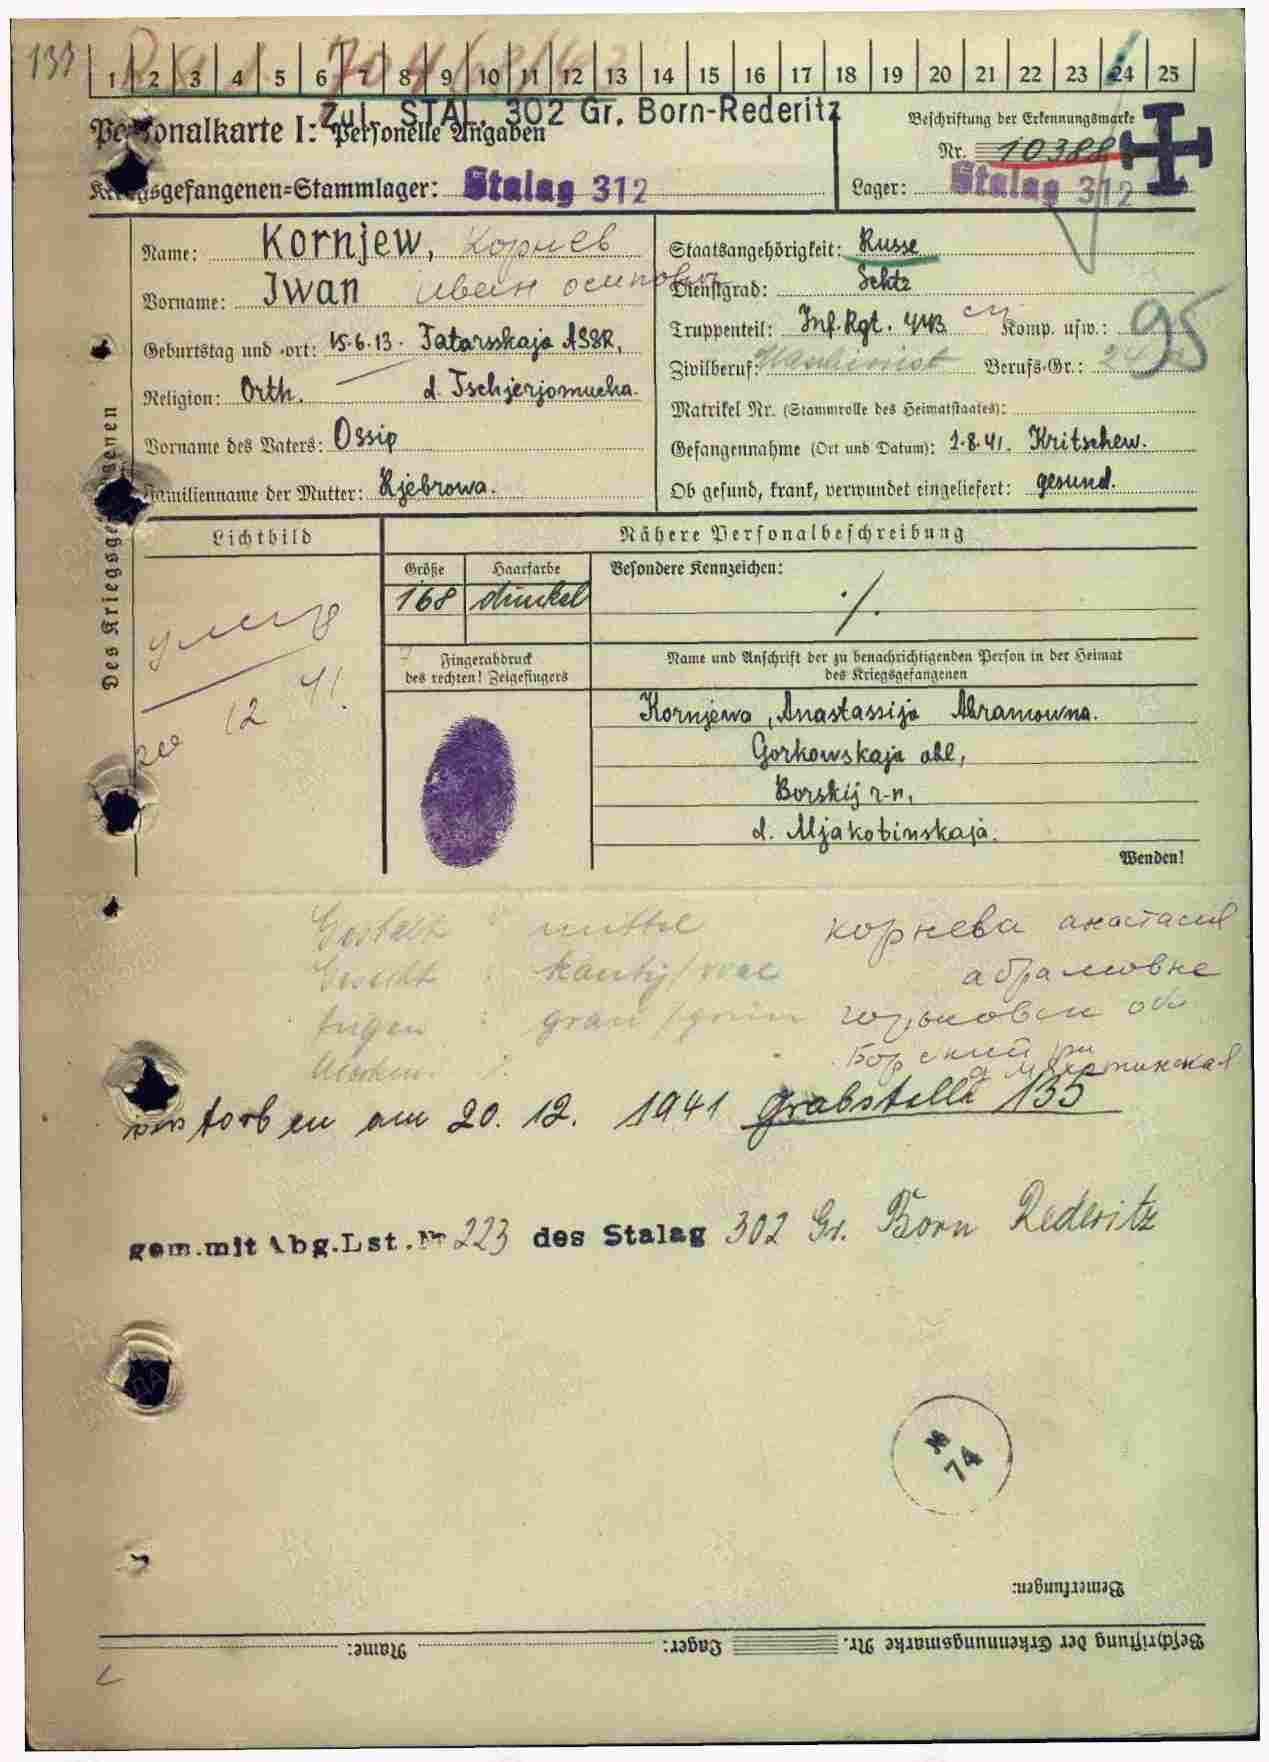 133
1 2 3 4 5 6 7 8 9 10 11 12 13 14 15 16 17 18 19 20 21 22 23 24 25
Zul. STAL. 302 Gr. Born-Rederitz
Personalkarte I: Personelle Angaben
Kriegsgefangenen=Stammlager: Stalag 312
Beschriftung der Erkennungsmarke
Nr. 10388
Lager: Stalag 312
Des Kriegsgefangenen
Name: Kornjew, Корнев
Vorname: Iwan Иван осипович
Geburtstag und -ort: 15.6.13. Tatarsskaja ASSR,
Religion: Orth. d. Tschjerjomucha.
Vorname des Vaters: Ossip
Familienname der Mutter: Rjebrowa.
Staatsangehörigkeit: Russe
Dienstgrad: Schtz
Truppenteil: Inf. Rgt. 443 Komp. usw.:
Zivilberuf: Maschinist Berufs-Gr.:
95
Matrikel Nr. (Stammrolle des Heimatstaates):
Gefangennahme (Ort und Datum): 2.8.41. Kritschew.
Ob gesund, krank, verwundet eingeliefert: gesund.
Lichtbild
умер
12 41.
Nähere Personalbeschreibung
Größe Haarfarbe Besondere Kennzeichen:
168 dunkel ./.
Fingerabdruck
des rechten! Zeigefingers
Name und Anschrift der zu benachrichtigenden Person in der Heimat
des Kriegsgefangenen
Kornjewa, Anastassija Abramowna.
Gorkowskaja obl,
Borskij r-n,
d. Mjakotinskaja.
Wenden!
Gestalt : mittel
Gesicht : kantig/
Augen : grau/grün
корнева анастасия
абрамовне
горьковск об
Борский рн
verstorben am 20. 12. 1941 Grabstelle 135
gem.mit Abg.Lst.Nr 223 des Stalag 302 Gr. Born Rederitz
M
74
Bemerkungen:
Beschriftung der Erkennungsmarke Nr. Lager: Name: